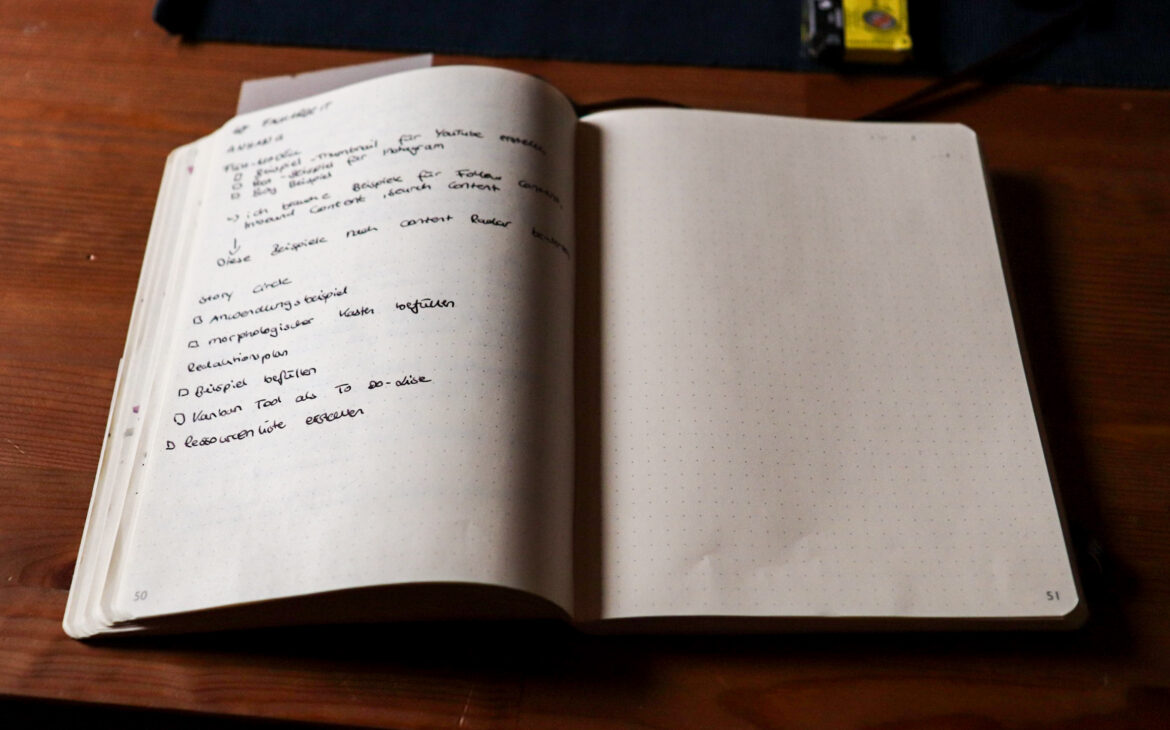 ANHANG
Beispiel-Thumbnail für YouTube erstellen
Beispiel für Instagram
Blog Beispiel
→ ich brauche Beispiele für Follow Content,
Inbound Content, Search Content
↓
Diese Beispiele nach Content Radar
Story Circle
□ Anwendungsbeispiel
□ morphologischer Kasten befüllen
Redaktionsplan
□ Beispiel befüllen
□ Kanban Tool als To Do-Liste
□ Ressourcenliste erstellen
50
51